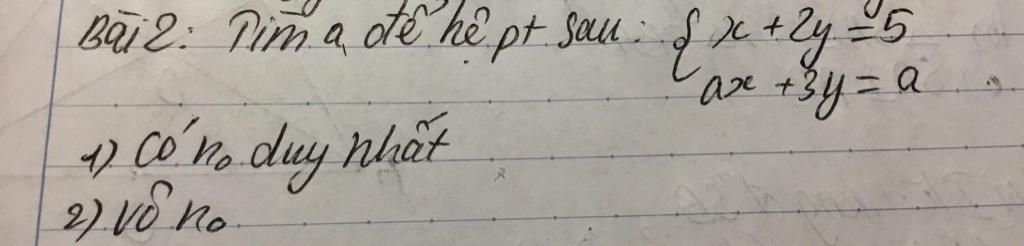 Bài 2: Tìm a để hệ pt sau: { x + 2y = 5
ax + 3y = a
1) Có no duy nhất
2) Vô no